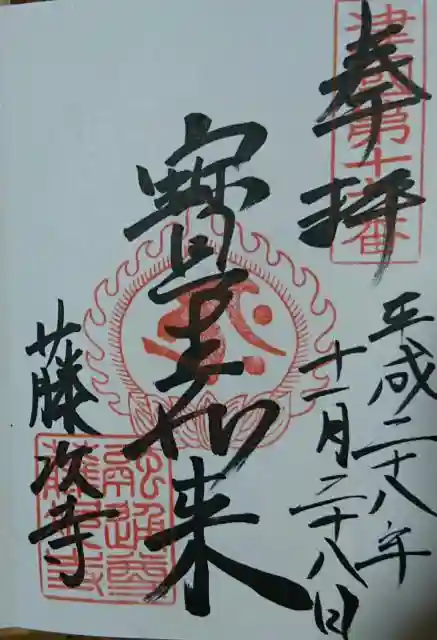 奉拝
津國第十六番
平成二十八年
十一月二十八日
寳生如来
藤次寺